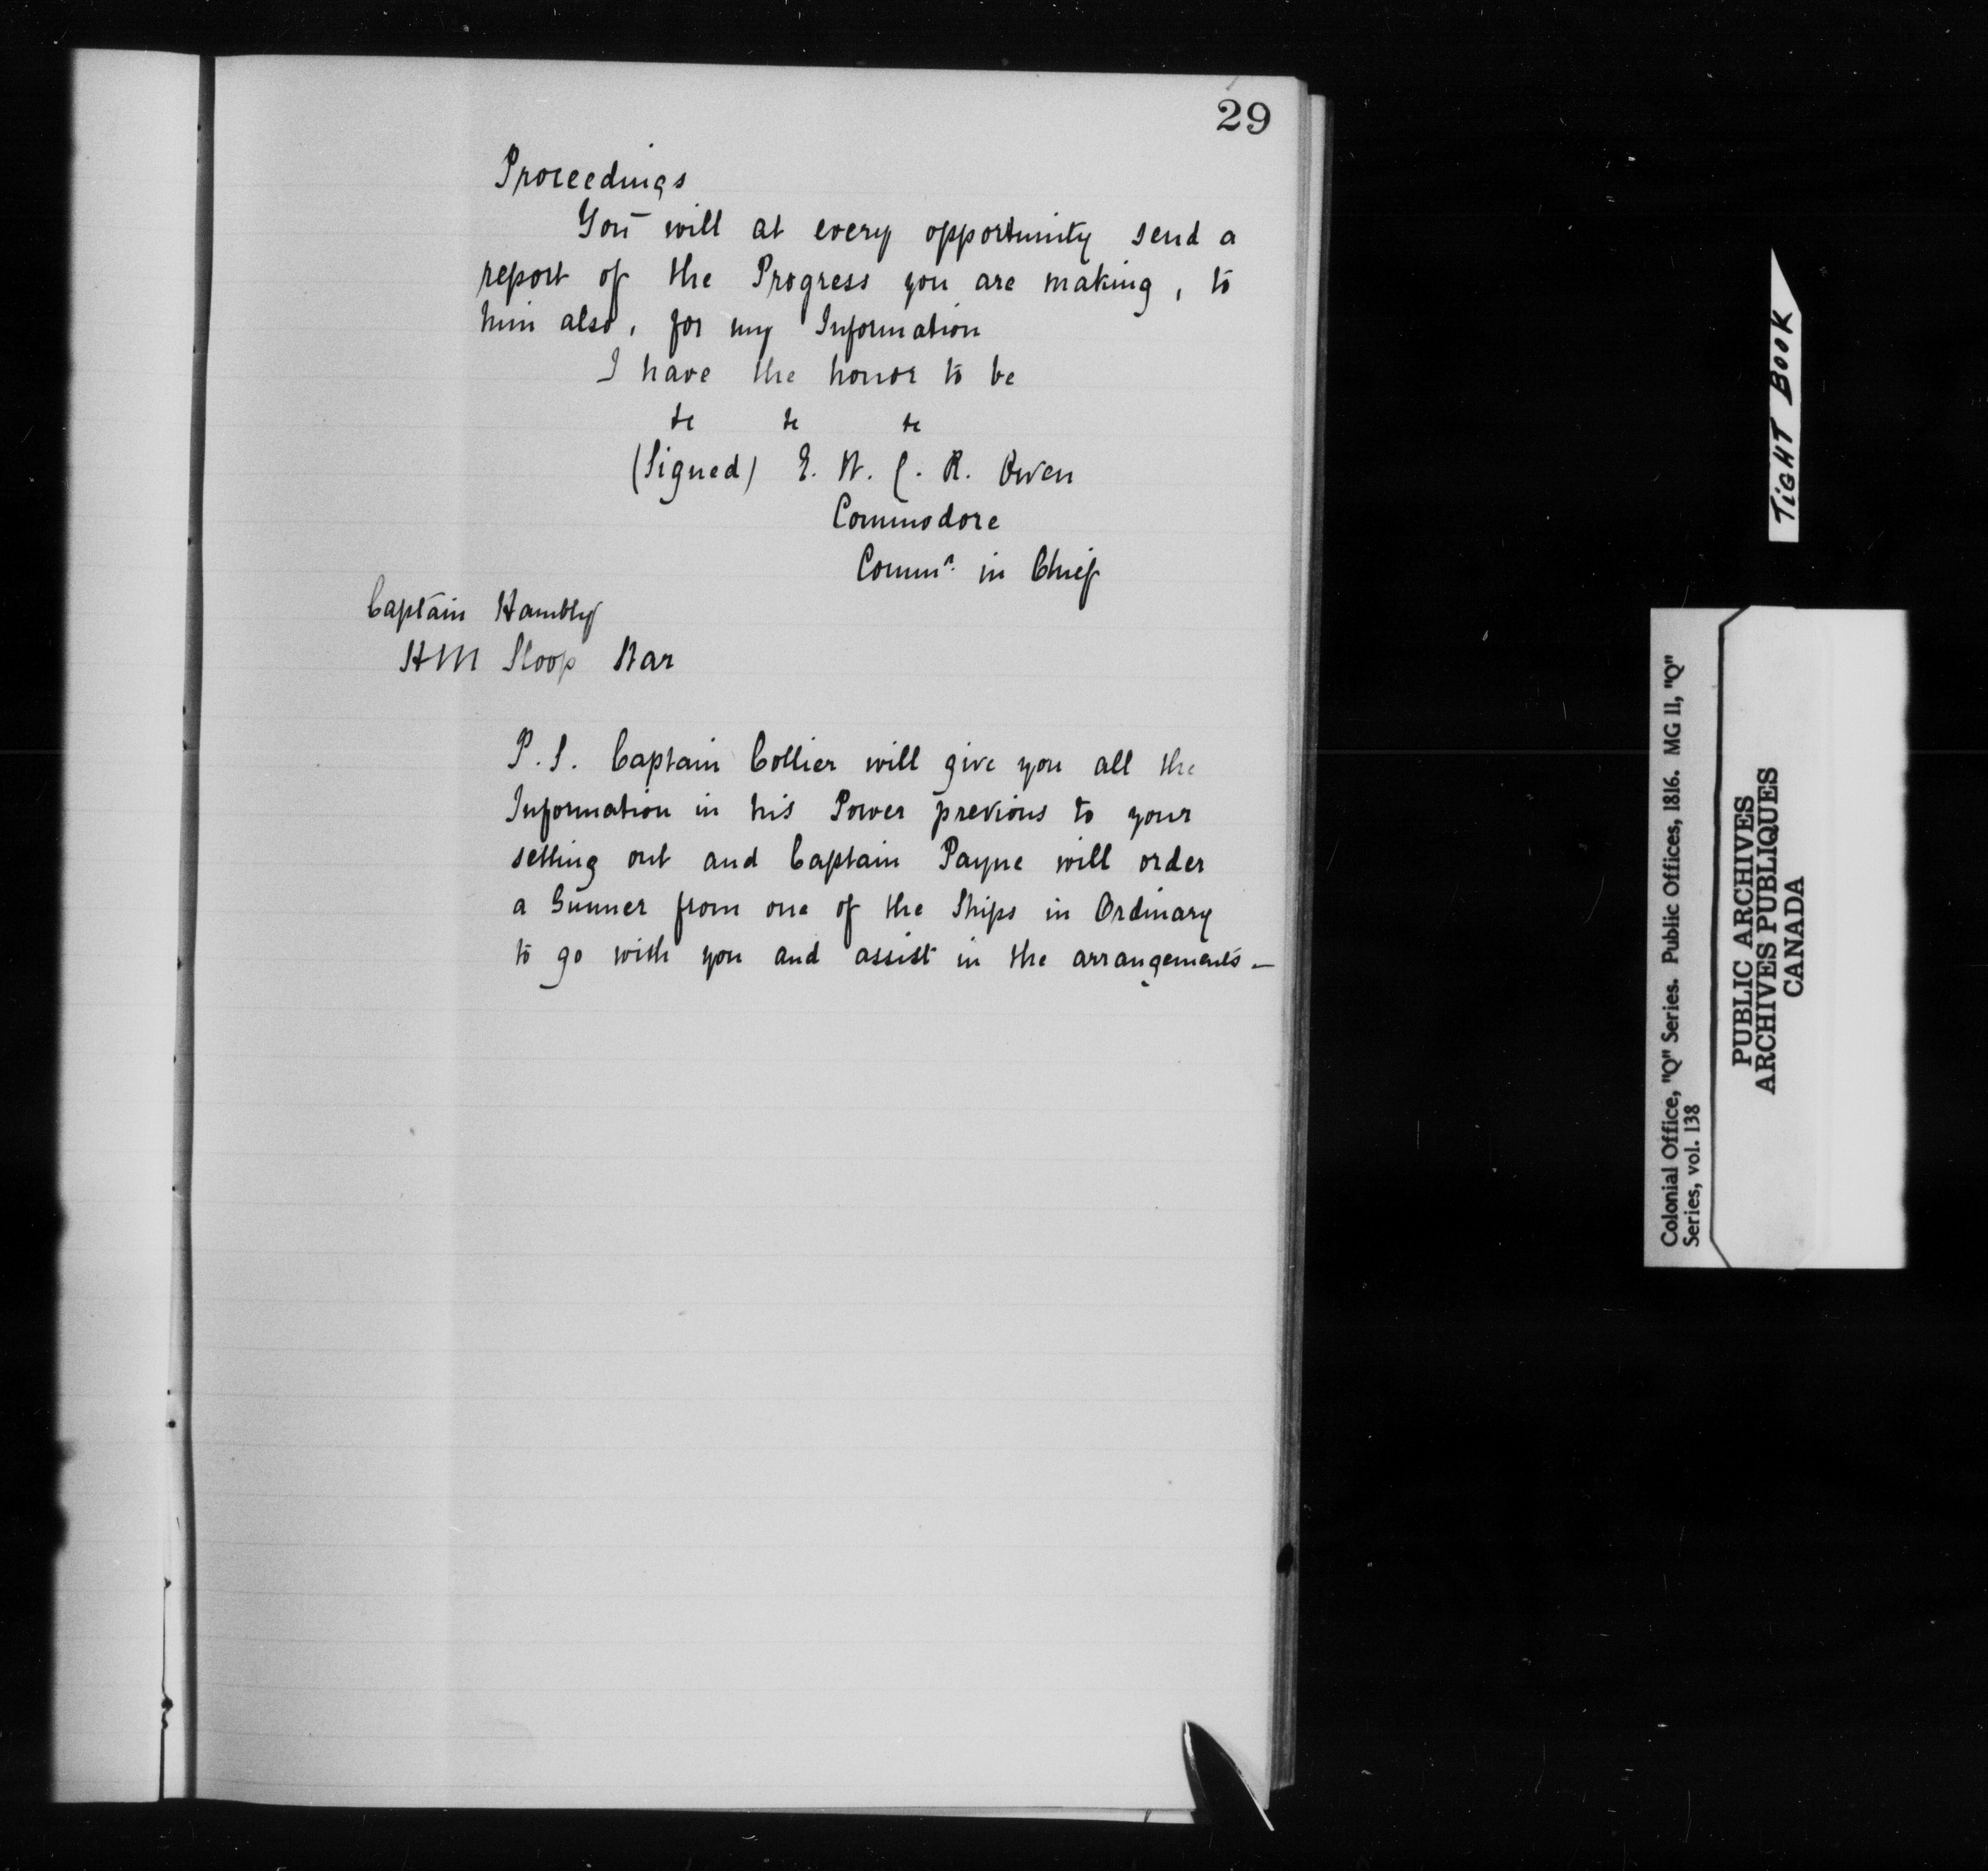 29
Proceedings
You will at every opportunity send a
report of the Progress you are making, to
him also, for my Information
I have the honor to be
&c &c &c
(Signed) E. W. C. R. Owen
Commodore
Commr. in Chief
Captain Hambly
HM Sloop Star
P.S. Captain Collier will give you all the
Information in his Power previous to your
setting out and Captain Payne will order
a Gunner from one of the Ships in Ordinary
to go with you and assist in the arrangements —
TiGHT BOOK
Colonial Office, "Q" Series. Public Offices, 1816. MG 11, "Q"
Series, vol. 138
PUBLIC ARCHIVES
ARCHIVES PUBLIQUES
CANADA